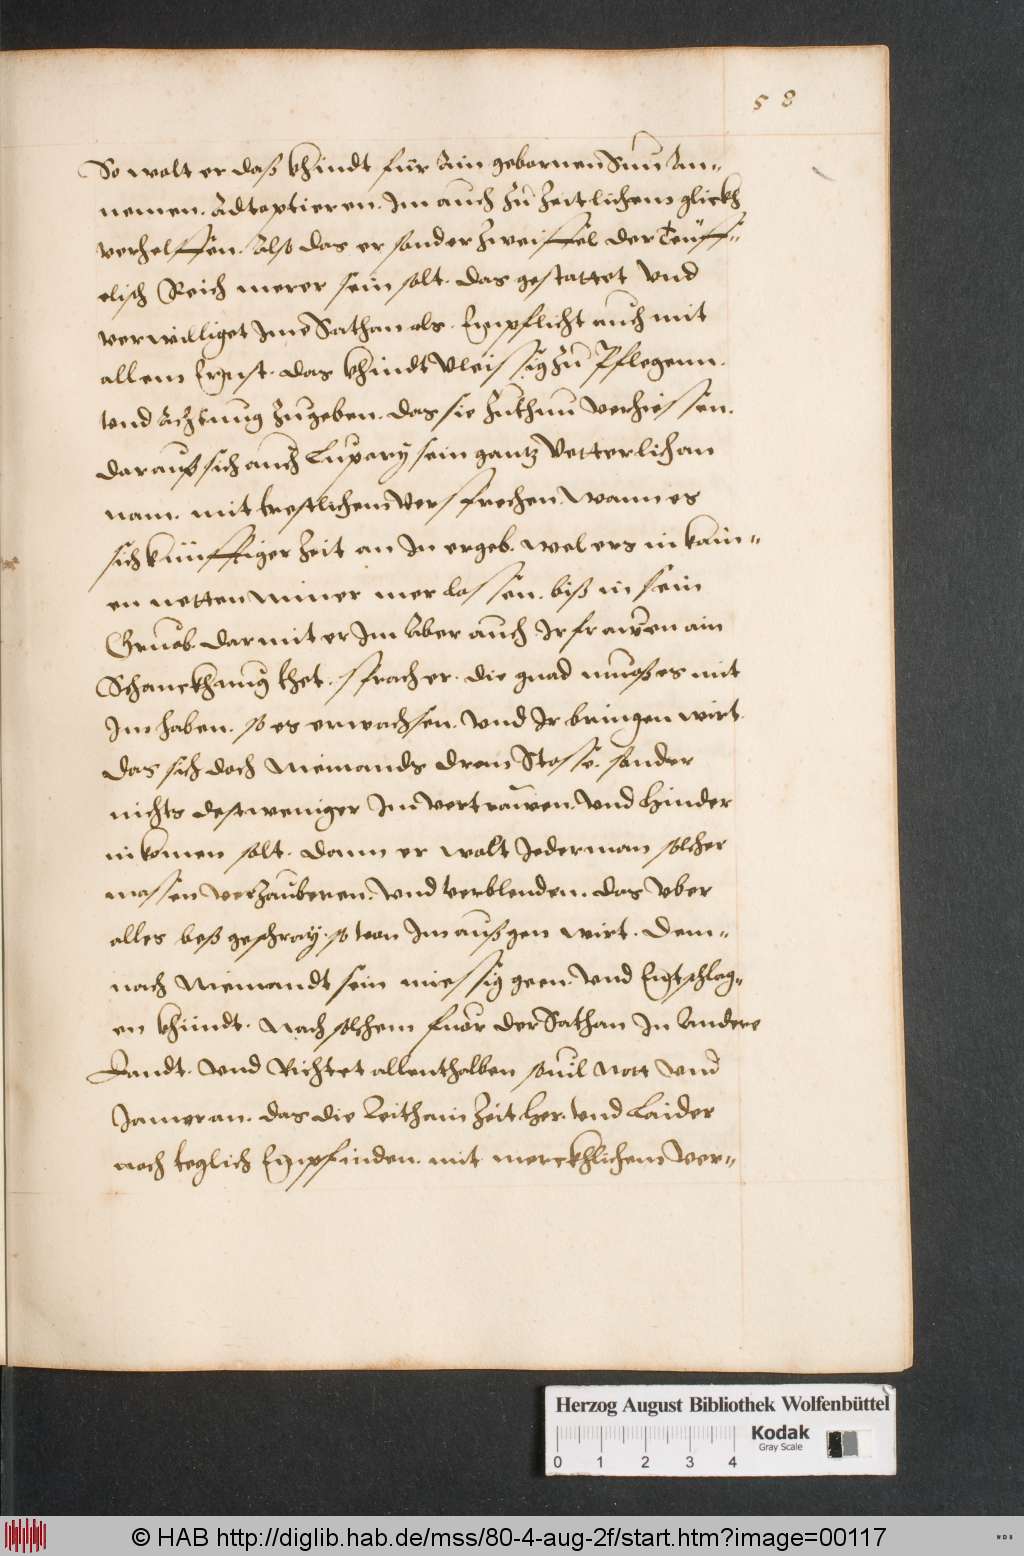 58
So wolt er daß khindt für Ain gebornen Sun An-
nemen. Adtoptieren. Im auch zu Zeitlichem glickh
verhelffen. Also das er sonder zweiffel der Teüff-
elisch Reich merer sein solt. das gestattet Und
verwilliget Ime Sathan als. Empflicht auch mit
allem Ernst. das khindt Vleissig zu Pflegenn.
und Achtung zugeben. das sie zuthun verhiessen.
darauß sich auch Lupery sein gantz Vetterlich an
nam. mit trestlichem Versprechen. wann es
sich künfftiger Zeit an In ergeb. wel ers in kain-
en netten nimer mer lassen. biß in sein
Gruob. darmit er Im Aber auch Ir frawen ain
Schanckhung thet. sprach er. die gnad muoß es mit
Im haben. so es erwachsen. Und Ir bringen wirt
das sich doch Niemands dran Stosse. sonder
nichts destweniger Im vertrawen. Und hinder
in komen solt. dann er wolt Jederman solcher
massen verzauberen. Und verblenden. das uber
alles beß geschray. so von Im außgen wirt. dem-
nach Niemandt sein miessig geen. Und Entschlag-
en khündt. Nach solchem fuor der Sathan In Andere
Landt. Und Richtet allenthalben souil Nott Und
Jamer an. das die Leith ain Zeit her. Und Laider
noch teglich Empfinden. mit merckhlichem Ver-
Herzog August Bibliothek Wolfenbüttel
Kodak
Gray Scale
0 1 2 3 4
© HAB http://diglib.hab.de/mss/80-4-aug-2f/start.htm?image=00117